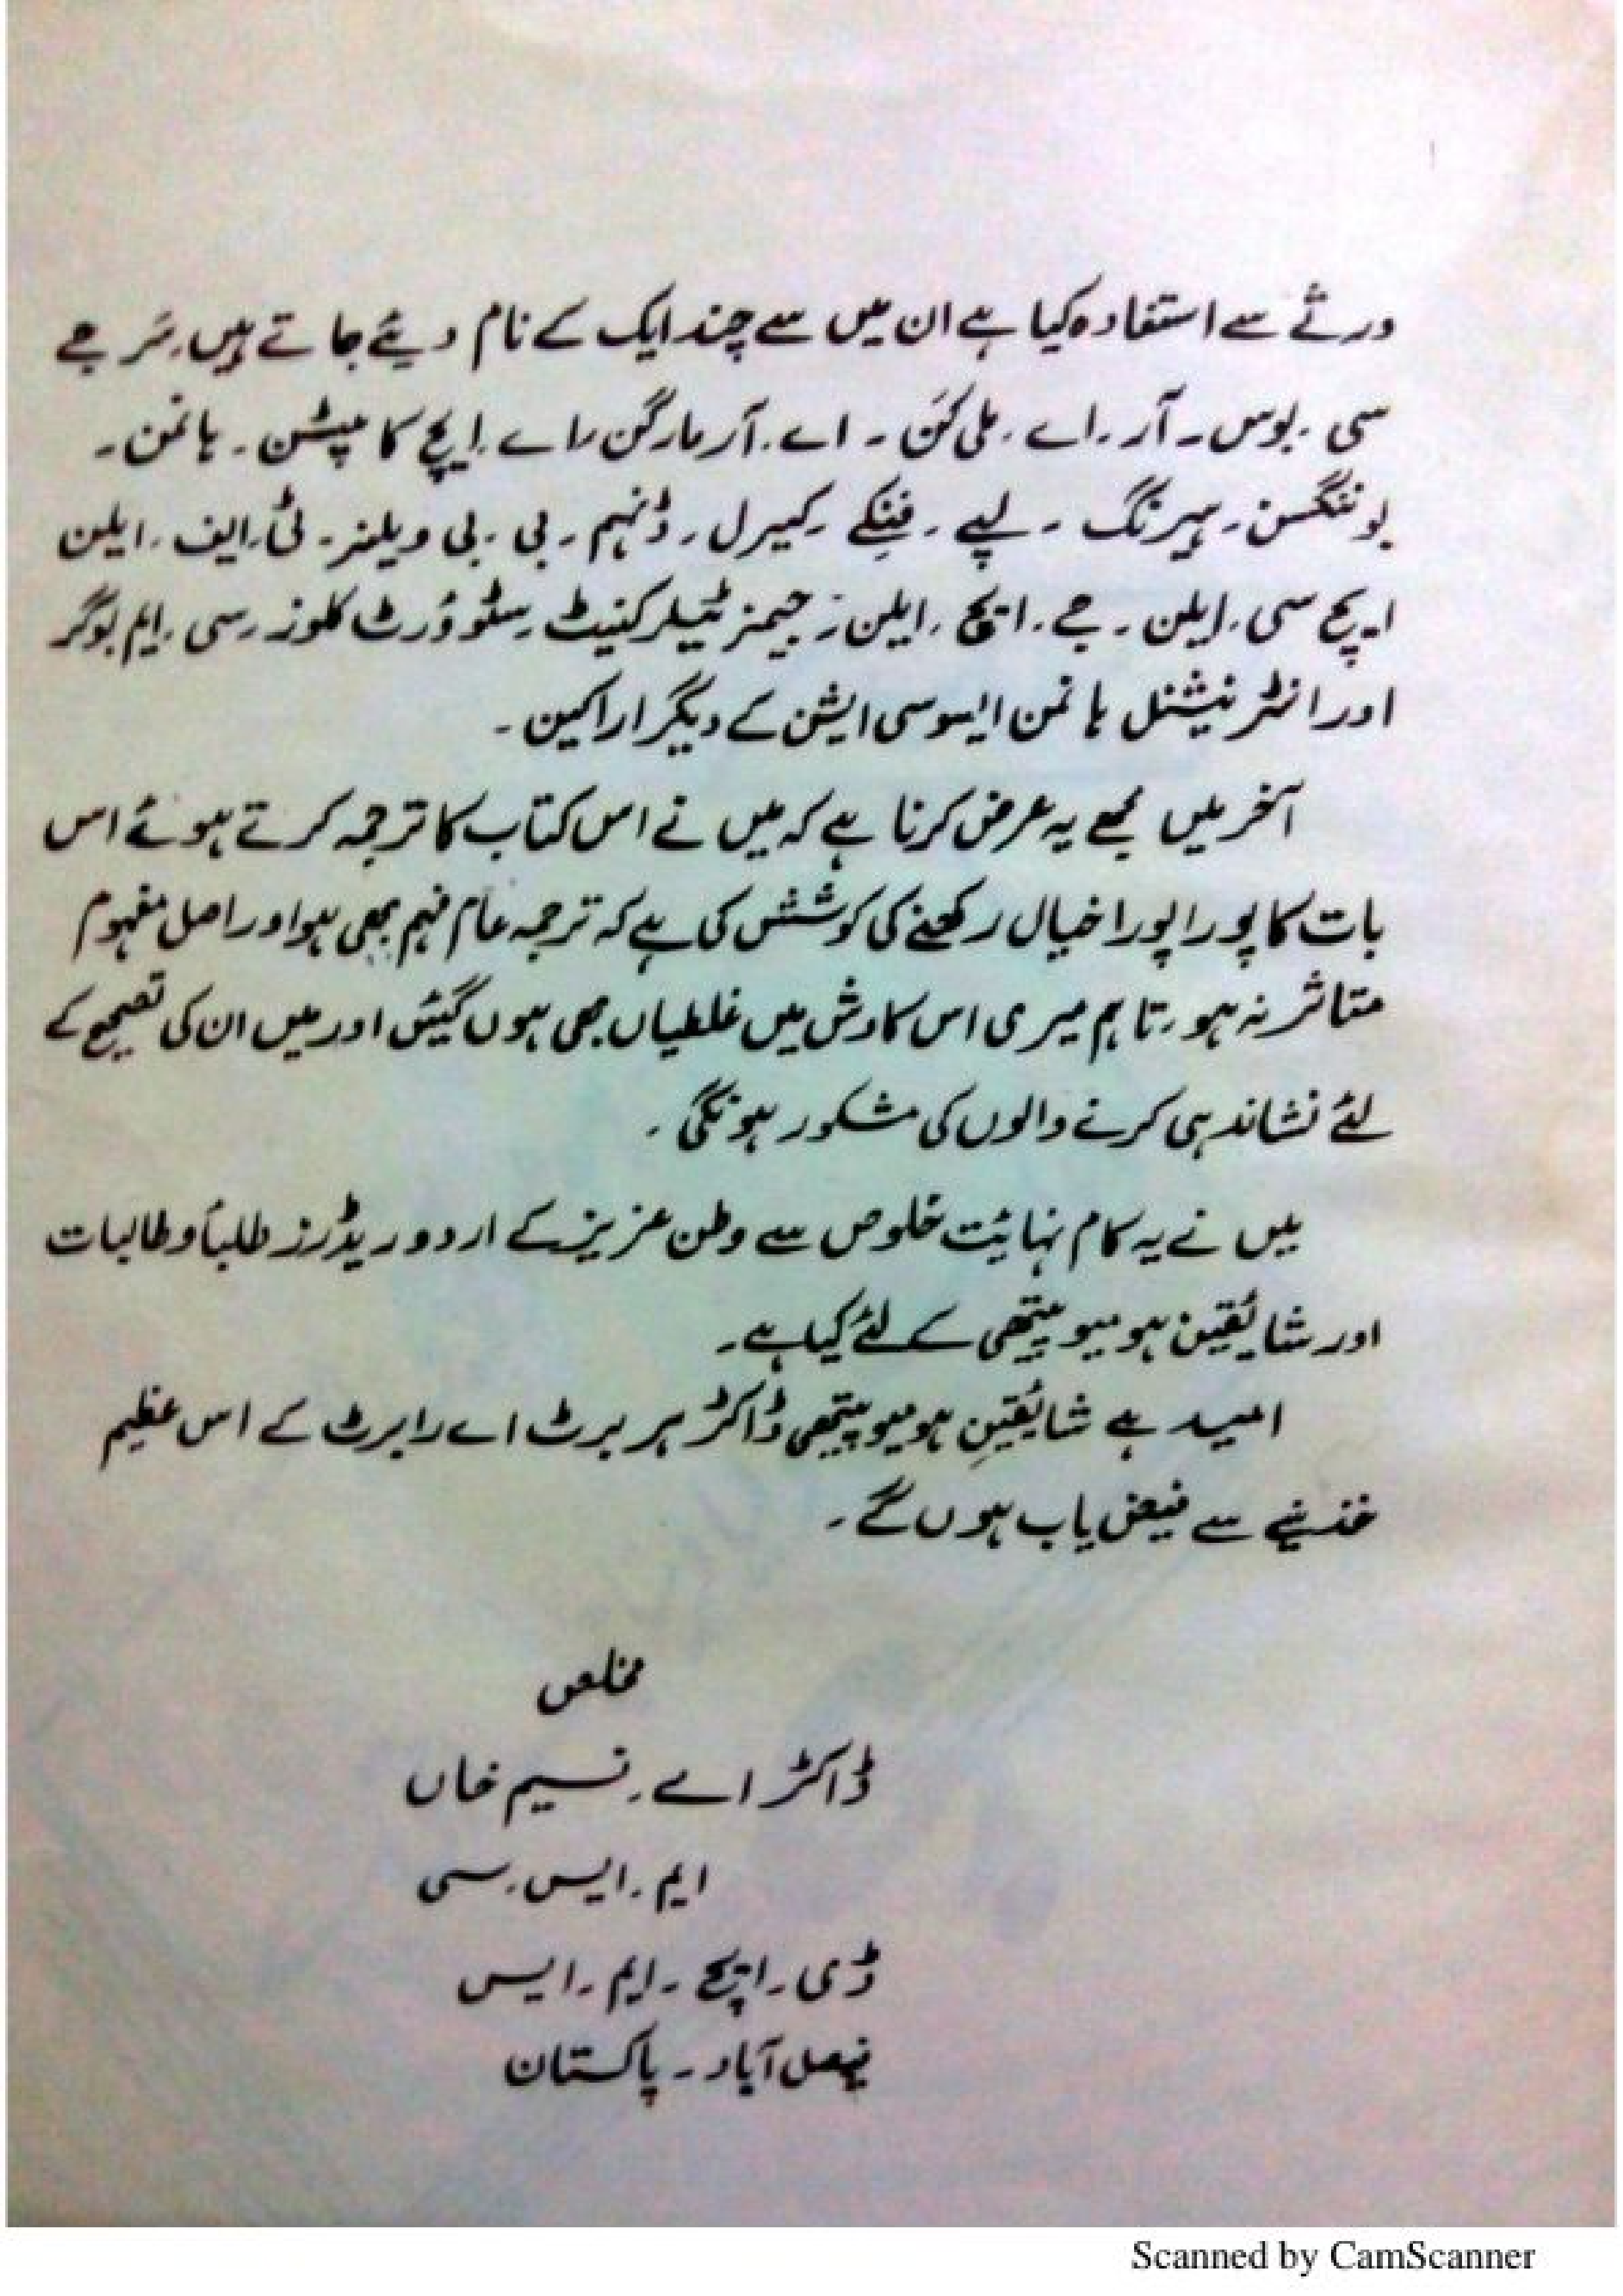 ورثے سے استفادہ کیا ہے ان میں سے چند ایک کے نام دیئے جاتے ہیں۔ سَر جے
سی۔ بوس۔ آر۔ اے۔ ملی کَن۔ اے۔ آر مارگن۔ اے۔ ایچ کا مپٹن۔ ہانمن۔
بوننگسن۔ ہیرنگ۔ لپے۔ فِنکے۔ کیرل۔ ڈنہم۔ بی۔ بی ویلنز۔ ٹی۔ ایف۔ ایلن
ایچ سی۔ ایلن۔ جے۔ ایچ۔ ایلن۔ جیمز ٹیلر کنیٹ۔ سٹوورٹ کلوز۔ سی۔ ایم بوگر
اور انٹرنیشنل ہانمن ایسوسی ایشن کے دیگر اراکین۔
آخر میں مجھے یہ عرض کرنا ہے کہ میں نے اس کتاب کا ترجمہ کرتے ہوئے اس
بات کا پورا پورا خیال رکھنے کی کوشش کی ہے کہ ترجمہ عام فہم بھی ہو اور اصل مفہوم
متاثر نہ ہو۔ تاہم میری اس کاوش میں غلطیاں بھی ہوں گیئں اور میں ان کی تصیحح کے
لئے نشاندہی کرنے والوں کی مشکور ہونگی۔
میں نے یہ کام نہائیت خلوص سے وطن عزیز کے اردو ریڈرز طلبأ و طالبات
اور شایٔقین ہومیوپیتھی کے لئے کیا ہے۔
امید ہے شایٔقینِ ہومیوپیتھی ڈاکٹر ہربرٹ اے رابرٹ کے اس عظیم
خذینے سے فیض یاب ہوں گے۔
مخلص
ڈاکٹر اے۔ نسیم خاں
ایم۔ ایس۔ سی
ڈی۔ ایچ۔ ایم۔ ایس
فیصل آباد۔ پاکستان
Scanned by CamScanner